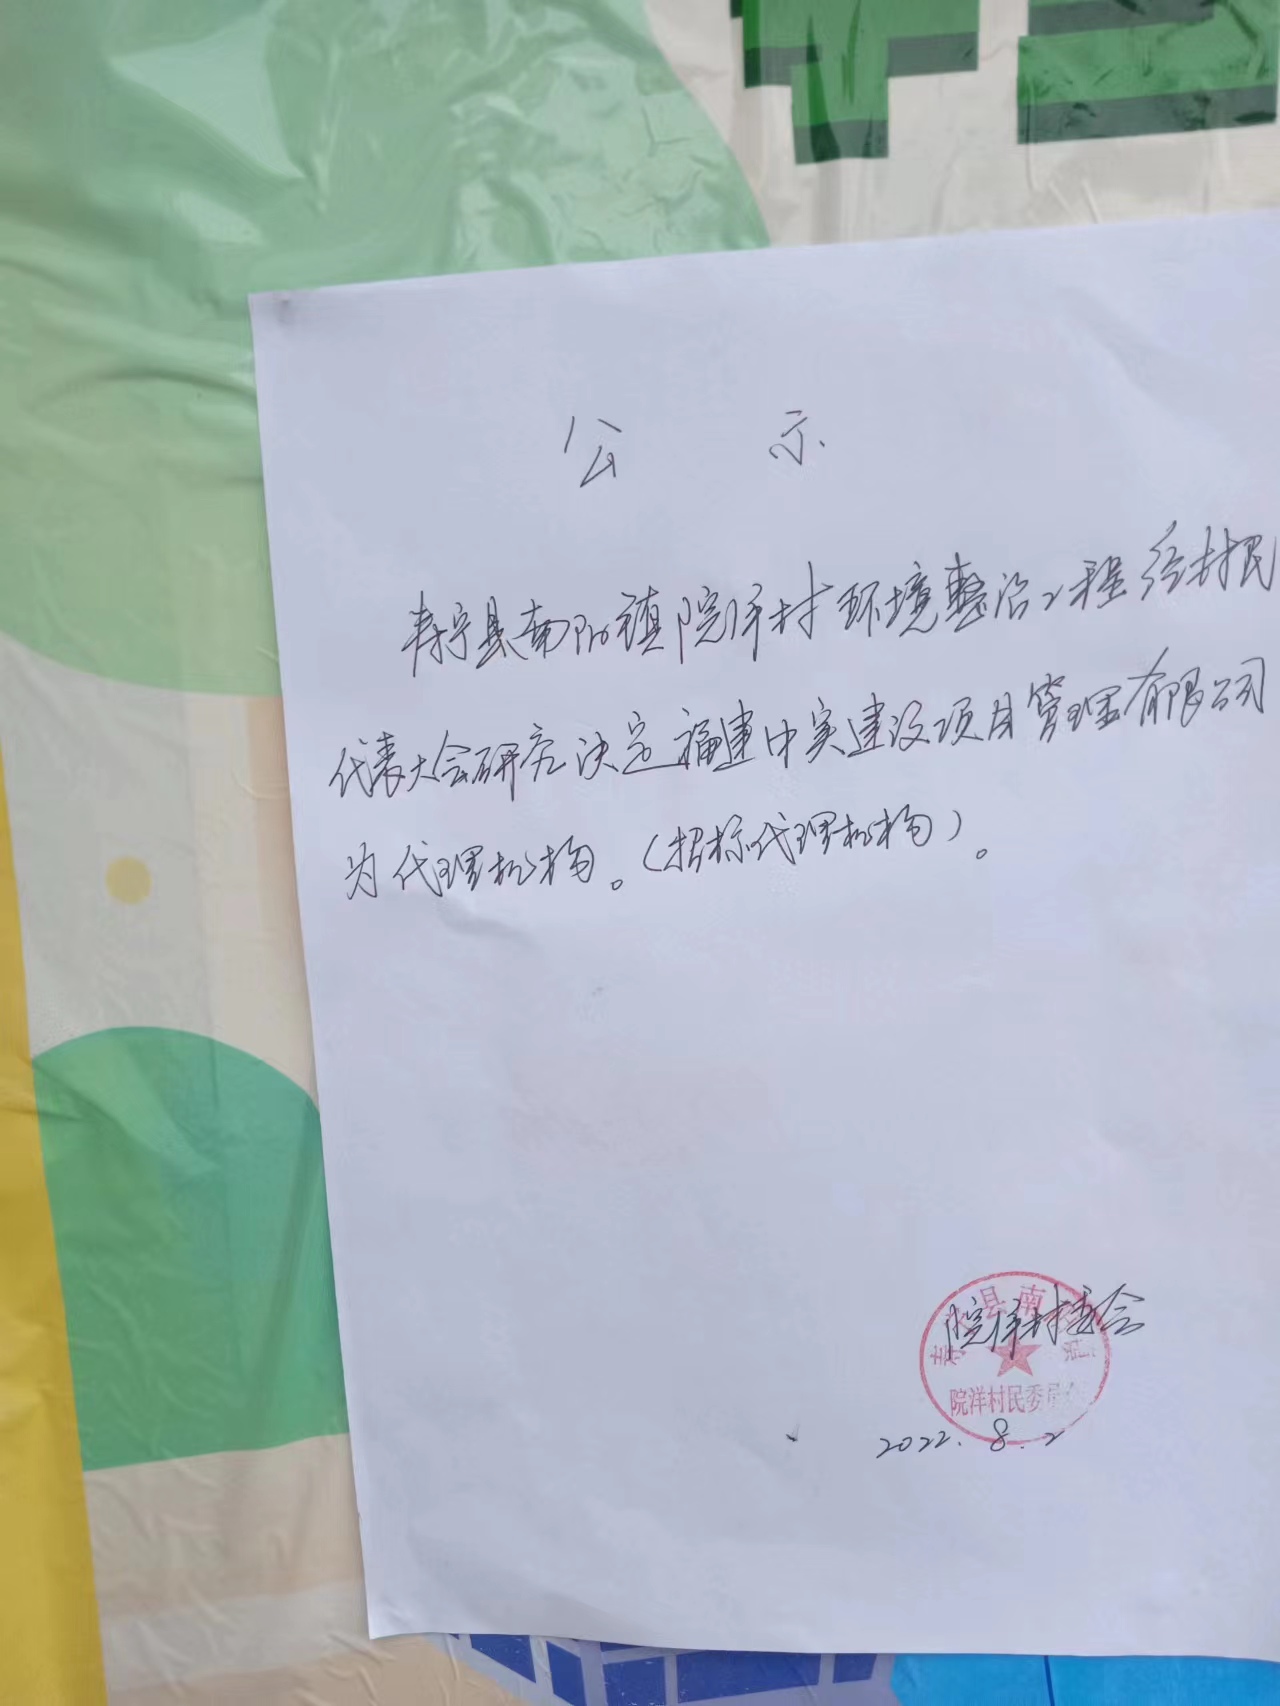 公 示
寿宁县南阳镇院洋村环境整治工程经村民
代表大会研究决定福建中实建设项目管理有限公司
为代理机构。(招标代理机构)。
院洋村委会
寿宁县南
院洋村民委员会
2022.8.2